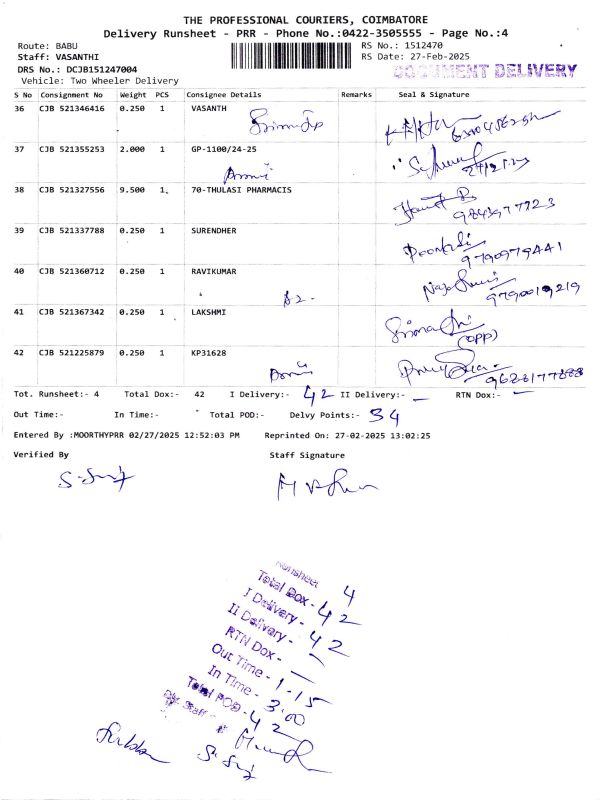 THE PROFESSIONAL COURIERS, COIMBATORE
Delivery Runsheet - PRR - Phone No.:0422-3505555 - Page No.:4
Route: BABU
Staff: VASANTHI
DRS No.: DCJB151247004
Vehicle: Two Wheeler Delivery
RS No.: 1512470
RS Date: 27-Feb-2025
DOCUMENT DELIVERY
S No Consignment No Weight PCS Consignee Details Remarks Seal & Signature
36 CJB 521346416 0.250 1 VASANTH
37 CJB 521355253 2.000 1 GP-1100/24-25
38 CJB 521327556 9.500 1 70-THULASI PHARMACIS
9843977723
39 CJB 521337788 0.250 1 SURENDHER
9790979441
40 CJB 521360712 0.250 1 RAVIKUMAR
9790019219
41 CJB 521367342 0.250 1 LAKSHMI
(opp)
42 CJB 521225879 0.250 1 KP31628
Tot. Runsheet:- 4 Total Dox:- 42 I Delivery:- 42 II Delivery:- — RTN Dox:- —
Out Time:- In Time:- Total POD:- Delvy Points:- 34
Entered By :MOORTHYPRR 02/27/2025 12:52:03 PM Reprinted On: 27-02-2025 13:02:25
Verified By Staff Signature
Runsheet 4
Total Dox - 42
I Delivery - 42
II Delivery - –
RTN Dox - —
Out Time - 1.15
In Time - 3.00
Total POD - 42
Staff -